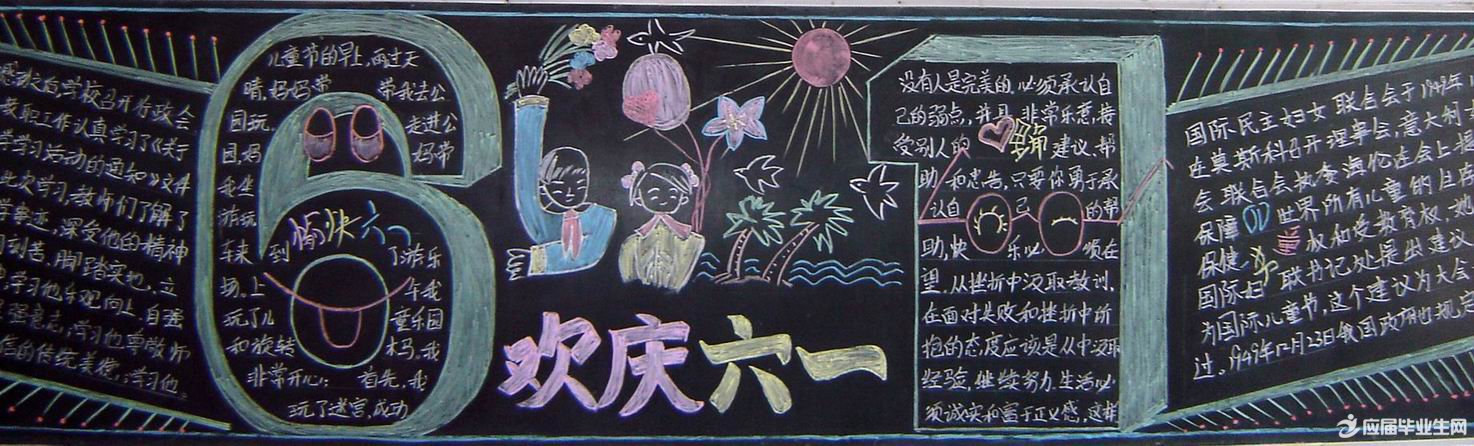 学校召开行政会
教职工作认真学习了《关于
学学习活动的通知》文件
此次学习,教师们了解了
学事迹,深受他的精神
刻苦、脚踏实地、立
学习他乐观向上、自强
坚强意志,学习他尊敬师
的传统美德,学习他
儿童节的早上,雨过天
晴,妈妈带 带我去公
园玩。 走进公
园,妈 妈带
我坐
游玩
车来到 了游乐
场。上 午我
玩了儿 童乐园
和旋转 木马。我
非常开心!首先,我
玩了迷宫,成功
愉快六一
欢庆六一
没有人是完美的,必须承认自
己的弱点,并且非常乐意接
受别人的 建议、帮
助和忠告,只要你勇于承
认自 己 的帮
助,快 乐必 须在
望。从挫折中汲取教训,
在面对失败和挫折中所
抱的态度应该是从中汲取
经验,继续努力。生活必
须诚实和富于正义感,这样
国际民主妇女联合会于1949年11
在莫斯科召开理事会,意大利
会联合会执委 在会上提
保障 世界所有儿童的生存
保健 权和受教育权,她
国际妇联书记处提出建议
为国际儿童节,这个建议为大会
过。1949年12月23日我国政府也规定
应届毕业生网